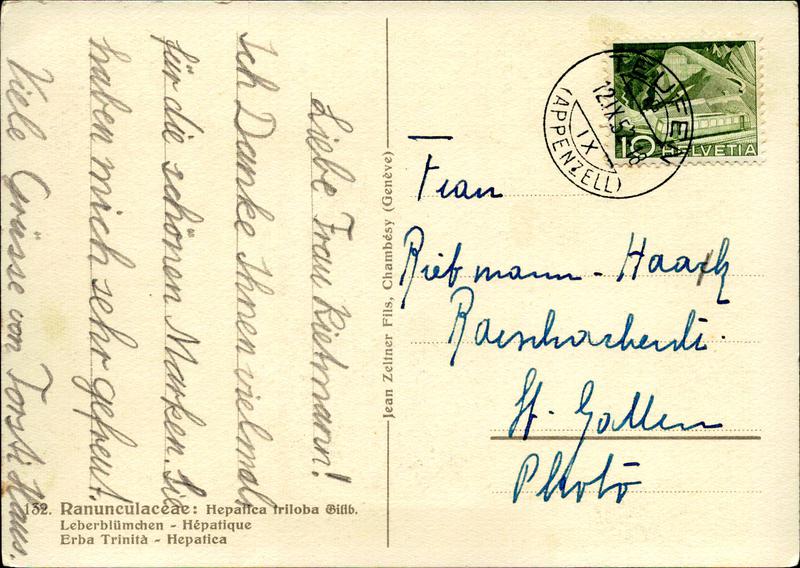 Liebe Frau Rietmann!
Ich Danke Ihnen vielmals
für die schönen Marken. Sie
haben mich sehr gefreut.
Viele Grüsse von Torsti Haus.
132. Ranunculaceae: Hepatica triloba Gilib.
Leberblümchen - Hépatique
Erba Trinità - Hepatica
Jean Zeltner Fils, Chambésy (Genève)
TEUFEN
12.IX.5
IX
(APPENZELL)
10 HELVETIA
Frau
Rietmann-Haack
St. Gallen
Photo